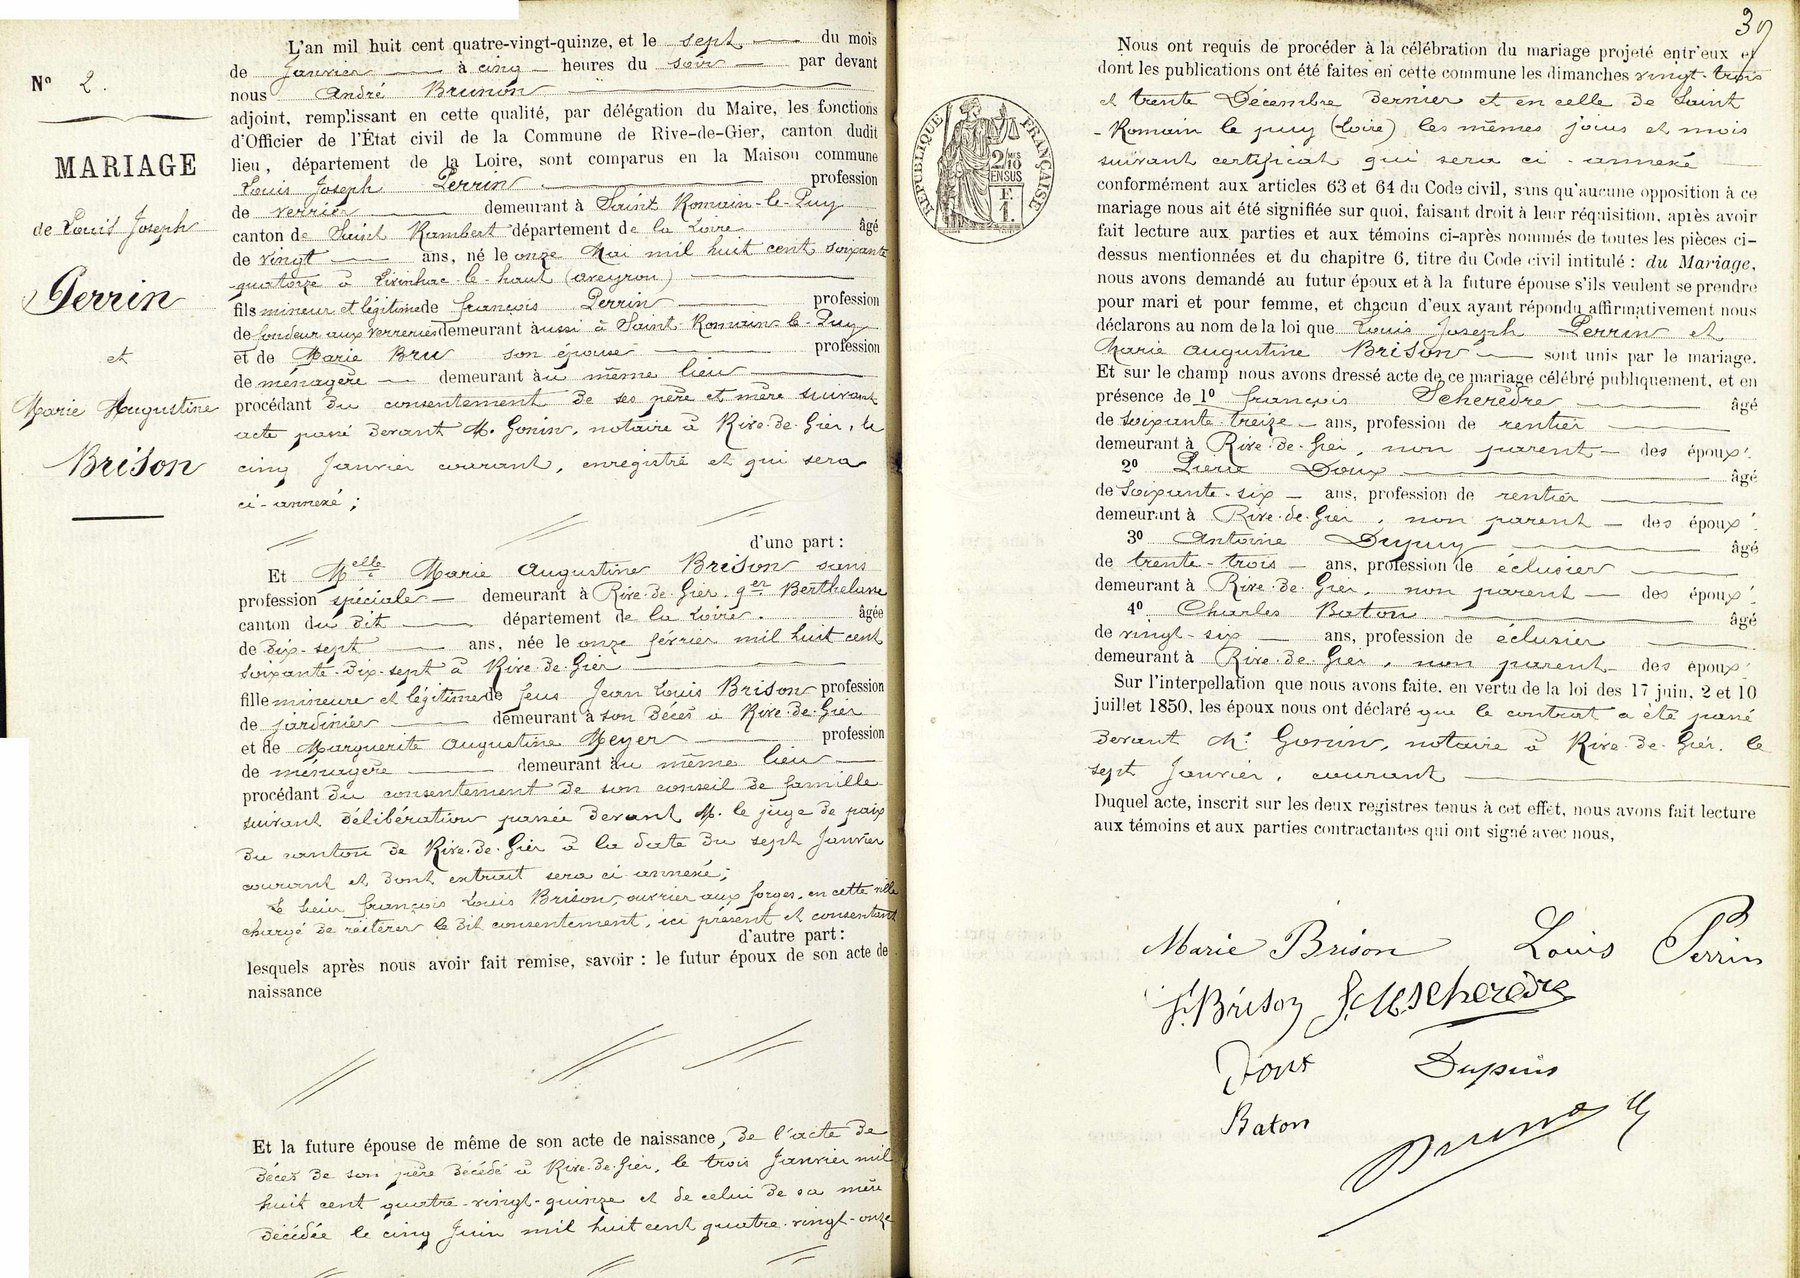 N° 2.
MARIAGE
de Louis Joseph
Perrin
et
Marie Augustine
Brison
L'an mil huit cent quatre-vingt-quinze, et le sept du mois
de Janvier à cinq heures du soir par devant
nous André Brunon
adjoint, remplissant en cette qualité, par délégation du Maire, les fonctions
d'Officier de l'État civil de la Commune de Rive-de-Gier, canton dudit
lieu, département de la Loire, sont comparus en la Maison commune
Louis Joseph Perrin profession
de verrier demeurant à Saint Romain-le-Puy
canton de Saint Rambert département de la Loire âgé
de vingt ans, né le onze Mai mil huit cent soixante
quatorze à Livinhac-le-haut (aveyron)
fils mineur et légitime de françois Perrin profession
de fondeur aux verreries demeurant aussi à Saint-Romain-le-Puy
et de Marie Bru son épouse profession
de ménagère demeurant au même lieu
procédant du consentement de ses père et mère suivant
acte passé devant M. Gonin, notaire à Rive-de-Gier, le
cinq Janvier courant, enregistré et qui sera
ci-annexé ;
d'une part :
Et Melle Marie augustine Brison sans
profession spéciale demeurant à Rive-de-Gier, qer Berthelane
canton du dit département de la Loire. âgée
de dix-sept ans, née le onze février mil huit cent
soixante-dix-sept à Rive-de-Gier
fille mineure et légitime de feus Jean Louis Brison profession
de jardinier demeurant à son décès à Rive-de-Gier
et de Marguerite augustine Meyer profession
de ménagère demeurant au même lieu
procédant du consentement de son conseil de famille
suivant délibération passée devant M. le juge de paix
du canton de Rive-de-Gier à la date du sept Janvier
courant et dont extrait sera ci annexé;
Le Sieur françois Louis Brison, ouvrier aux forges, en cette ville
chargé de réitérer le dit consentement, ici présent et consentant
d'autre part :
lesquels après nous avoir fait remise, savoir : le futur époux de son acte de
naissance
Et la future épouse de même de son acte de naissance, de l'acte de
décès de son père décédé à Rive-de-Gier, le trois Janvier mil
huit cent quatre-vingt-quinze et de celui de sa mère
décédée le cinq Juin mil huit cent quatre-vingt-onze
RÉPUBLIQUE FRANÇAISE
2/10
EN SUS
Nous ont requis de procéder à la célébration du mariage projeté entr'eux et
dont les publications ont été faites en cette commune les dimanches vingt-trois
et trente Décembre dernier et en celle de Saint
-Romain le puy (Loire) les mêmes jours et mois
suivant certificat qui sera ci-annexé
conformément aux articles 63 et 64 du Code civil, sans qu'aucune opposition à ce
mariage nous ait été signifiée sur quoi, faisant droit à leur réquisition, après avoir
fait lecture aux parties et aux témoins ci-après nommés de toutes les pièces ci-
dessus mentionnées et du chapitre 6, titre du Code civil intitulé : du Mariage,
nous avons demandé au futur époux et à la future épouse s'ils veulent se prendre
pour mari et pour femme, et chacun d'eux ayant répondu affirmativement nous
déclarons au nom de la loi que Louis Joseph Perrin et
Marie augustine Brison sont unis par le mariage.
Et sur le champ nous avons dressé acte de ce mariage célébré publiquement, et en
présence de 1° françois Scherèdre âgé
de soixante-treize ans, profession de rentier
demeurant à Rive-de-Gier, non parent des époux.
2° Pierre Doux âgé
de soixante-six ans, profession de rentier
demeurant à Rive-de-Gier, non parent des époux.
3° Antoine Dupuy âgé
de trente-trois ans, profession de éclusier
demeurant à Rive-de-Gier, non parent des époux.
4° Charles Baton âgé
de vingt-six ans, profession de éclusier
demeurant à Rive-de-Gier, non parent des époux.
Sur l'interpellation que nous avons faite, en vertu de la loi des 17 juin, 2 et 10
juillet 1850, les époux nous ont déclaré que le contrat a été passé
devant Me Gonin, notaire à Rive-de-Gier, le
sept Janvier, courant
Duquel acte, inscrit sur les deux registres tenus à cet effet, nous avons fait lecture
aux témoins et aux parties contractantes qui ont signé avec nous,
Marie Brison Louis Perrin
f. Brison Scherèdre
Doux Dupuis
Baton